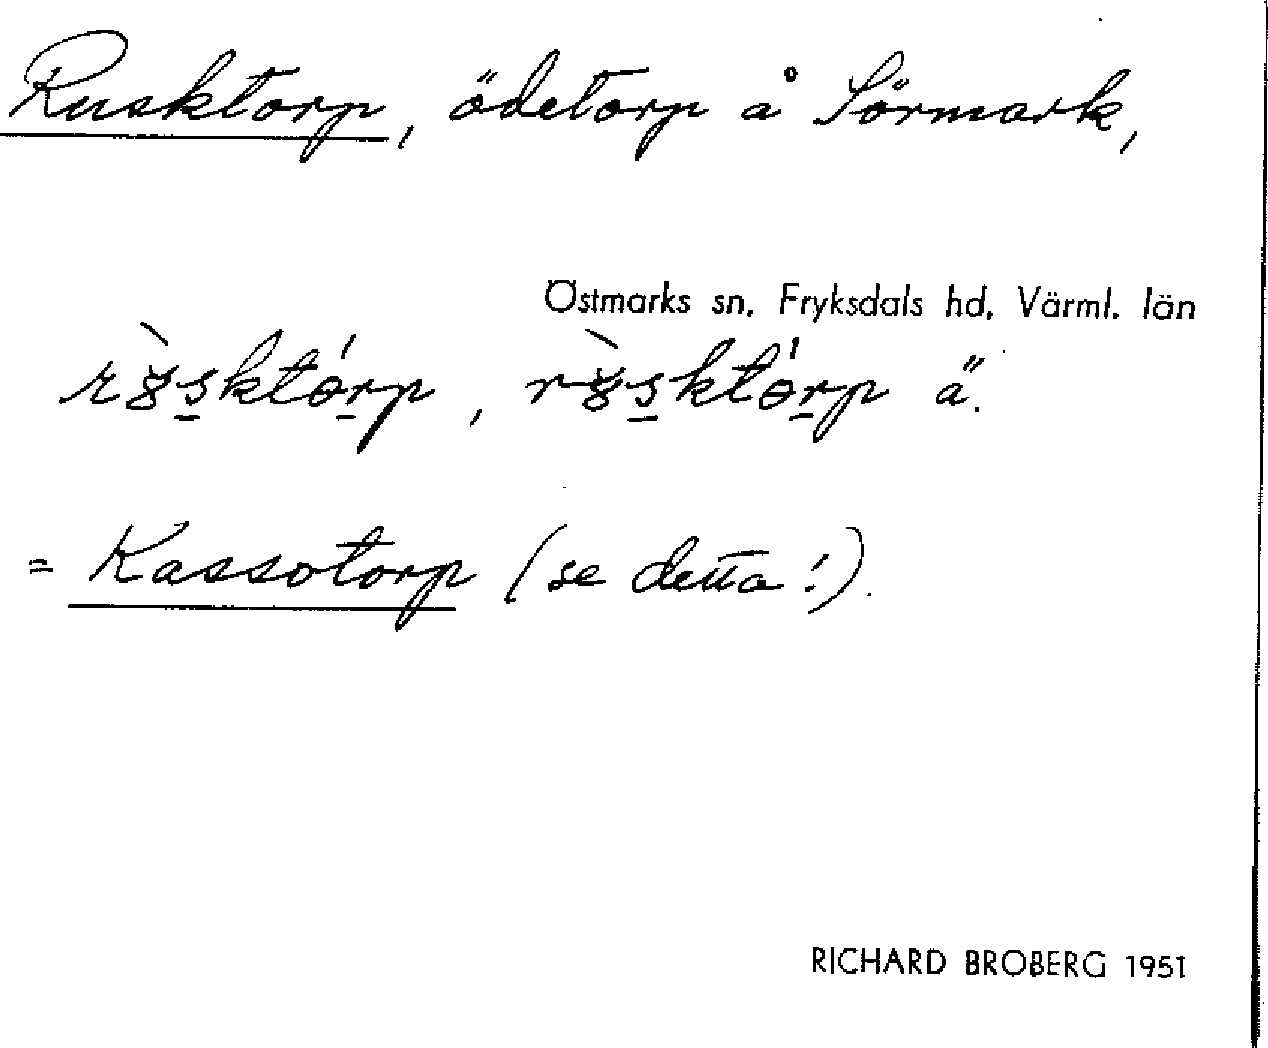 Rusktorp, ödetorp å Sörmark,
Östmarks sn, Fryksdals hd, Värml. län
rȣ̀sktórp, rȣ̀sktórp ä.
= Kassotorp (se detta!).
RICHARD BROBERG 1951